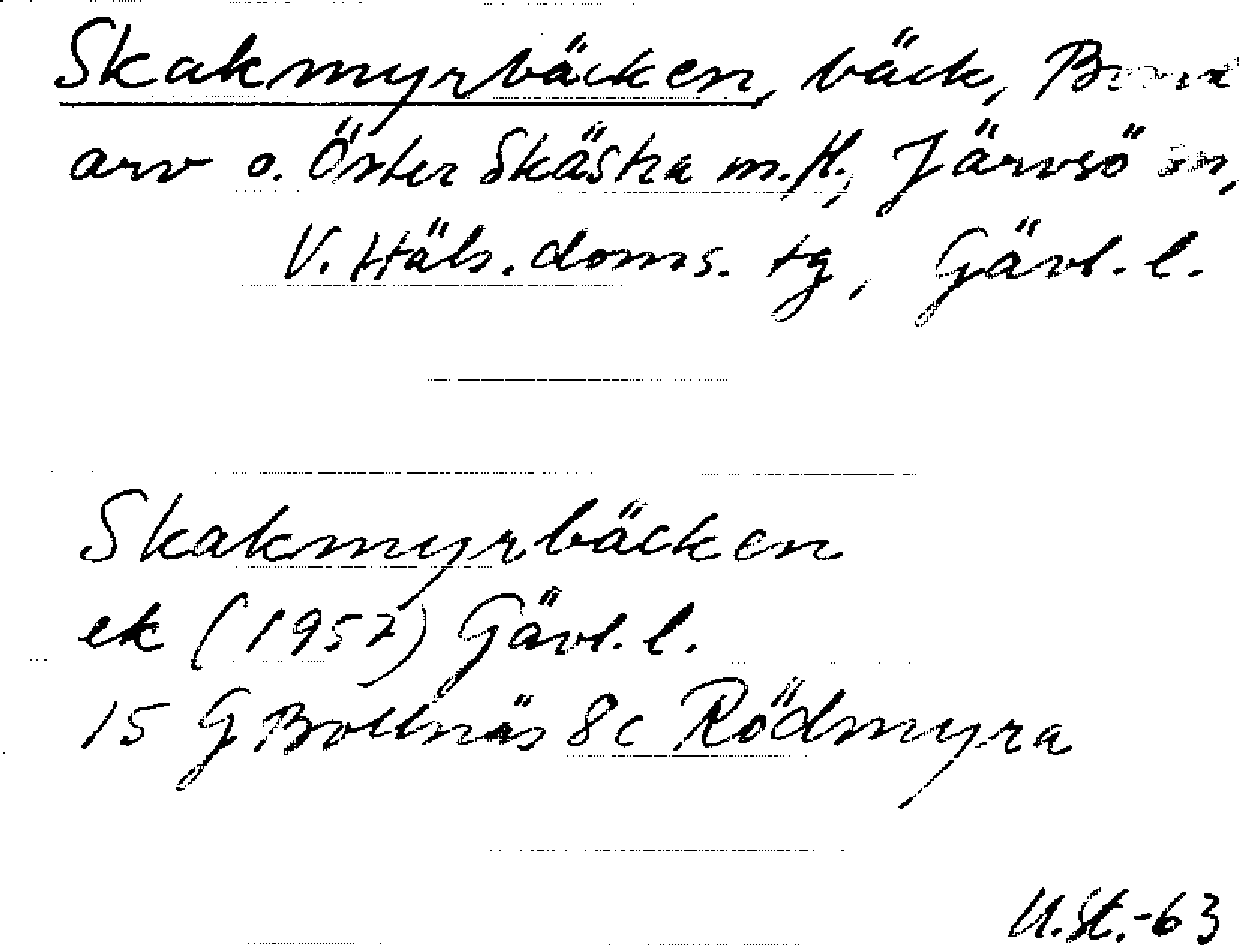 Skakmyrbäcken, bäck,
arv o. Öster Skästra m.fl., Järvsö sn,
V. Häls. doms. tg, Gävl. l.
Skakmyrbäcken
ek (1957) Gävl. l.
15 G Bollnäs 8c Rödmyra
U.St.-63